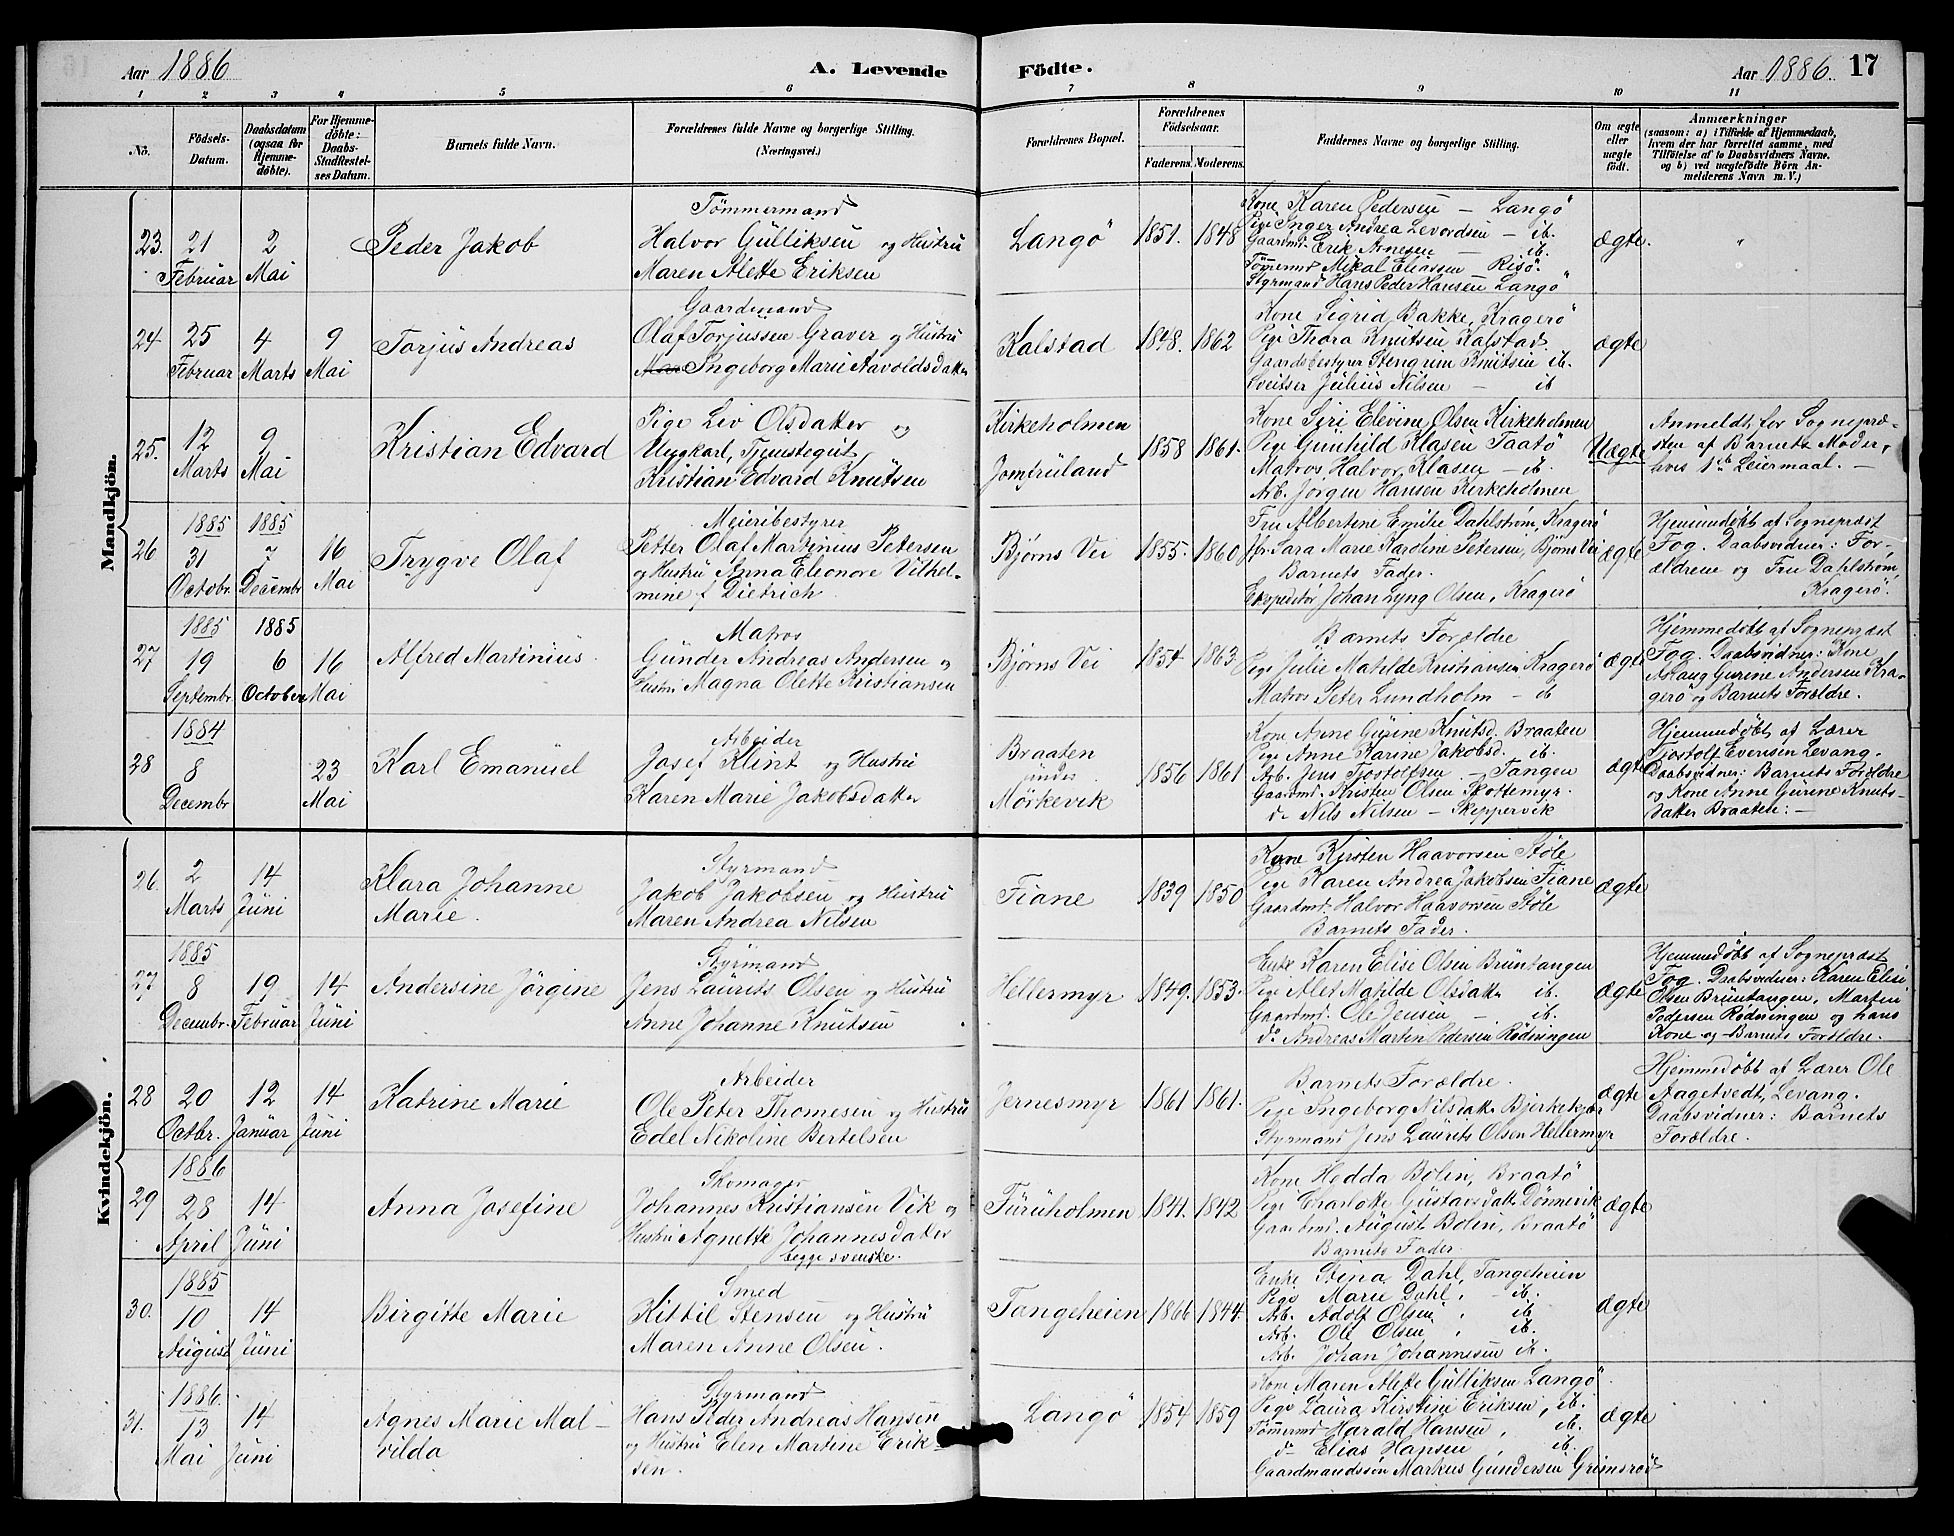 Aar 1886
A. Levende
Födte.
Aar 1886. 17
1 2 3 4 5 6 7 8 9 10 11
No.
Födsels-
Datum.
Daabsdatum
(ogsaa for
Hjemme-
döbte).
For Hjemme-
döbte:
Daabs-
Stadfæstel-
ses Datum.
Barnets fulde Navn.
Forældrenes fulde Navne og borgerlige Stilling.
(Næringsvei.)
Forældrenes Bopæl.
Forældrenes
Födselsaar.
Faderens. Moderens.
Faddernes Navne og borgerlige Stilling.
Om ægte
eller
uægte
födt.
Anmærkninger
(saasom: a) i Tilfælde af Hjemmedaab,
hvem der har forrettet samme, med
Tilföielse af to Daabsvidners Navne.
og b) ved uægtefödte Börn An-
melderens Navn m. V.)
Mandkjön.
23. 21
Februar
2
Mai
Peder Jakob
Tömmermand
Halvor Gulliksen og Hustru
Maren Alette Eriksen
Langö
1851. 1848
Kone Karen Pedersen — Langö
Pige Inger Andrea Levordsen — ib.
Gaardmd. Erik Arnesen — ib.
Tömermd Mikal Eliassen Risö.
Styrmand Hans Peder Hansen Langö
ægte.
"
24 25
Februar
4
Marts
9
Mai
Torjus Andreas
Gaardmand
Olaf Torjussen Graver og Hustru
Ingeborg Marie Aavoldsdatter
Kalstad
1848. 1862
Kone Sigrid Bakke, Kragerö
Pige Thora Knutsen Kalstad
Gaardsbestyrer Stengrim Knutsen ib.
Sveitser Julius Nilsen — ib
ægte
25. 12
Marts
9
Mai
Kristian Edvard
Pige Liv Olsdatter og
Ungkarl, Tjenestegut
Kristian Edvard Knutsen
Kirkeholmen
Jomfruland
1858 1861.
Kone Siri Elevine Olsen Kirkeholmen
Pige Gunhild Klasen Taatö
Matros Halvor Klasen — ib.
Arb. Jörgen Hansen Kirkeholmen
Uægte
Anmeldt for Sognepræ-
sten af Barnets Moder,
hvis 1ste Leiermaal. —
26 1885
31
Octobr.
1885
7
Decembr
16
Mai
Trygve Olaf
Meieribestyrer
Petter Olaf Martinius Petersen
og Hustru Anna Eleonore Vilhel-
mine f. Dietrich.
Bjørns Vei
1855. 1860
Fru Albertine Emilie Dahlstrøm, Kragerö
Sara Marie Karoline Petersen, Bjørns Vei
Barnets Fader.
Expeditør Johan Lyng Olsen, Kragerö
ægte
Hjemmedøbt af Sognepræst
Fog. Daabsvidner: For-
ældrene og Fru Dahlstrøm,
Kragerö.
27 1885
19
Septembr.
1885
6
October
16
Mai
Alfred Martinius.
Matros
Gunder Andreas Andersen og
Hustru Magna Olette Kristiansen
Bjørns Vei
1854 1863
Barnets Forældre
Pige Julie Matilde Kristiansen Kragerö
Matros Peter Lundholm — ib
ægte
Hjemmedøbt af Sognepræst
Fog. Daabsvidner: Kone
Aslaug Gurine Andersen Kra-
gerö og Barnets Forældre.
28 1884
8
Decembr
23
Mai
Karl Emanuel
Arbeider
Josef Klint og Hustru
Karen Marie Jakobsdatter
Braaten
under
Mörkevik
1856 1861
Kone Anne Gurine Knutsd. Braaten
Pige Anne Karine Jakobsd. ib.
Arb. Jens Tjostolfsen — Tangen
Gaardmd. Kristen Olsen Skottemyr.
do Nils Nilsen — Skeppervik
ægte
Hjemmedøbt af Lærer
Tjostolf Evensen Levang.
Daabsvidner: Barnets Forældre
og Kone Anne Gurine Knuts-
datter Braaten. —
Kvindekjön.
26. 2
Marts
14
Juni
Klara Johanne
Marie.
Styrmand
Jakob Jakobsen og Hustru
Maren Andrea Nilsen
Fiane
1839 1850
Kone Kirsten Haavorsen Støle
Pige Karen Andrea Jakobsen Fiane
Gaardmd. Halvor Haavorsen Støle
Barnets Fader.
ægte
27 1885
8
Decembr.
19
Februar
14
Juni
Andersine Jörgine
Styrmand
Jens Laurits Olsen og Hustru
Anne Johanne Knutsen
Hellermyr
1849. 1853.
Enke Karen Elise Olsen Bruntangen
Pige Alet Matilde Olsdatt. ib.
Gaardmd. Ole Jensen — ib.
do Andreas Martin Pedersen Rödningen
ægte
Hjemmedøbt af Sognepræst
Fog. Daabsvidner: Karen Elise
Olsen Bruntangen, Martin
Pedersen Rödningen og hans
Kone og Barnets Forældre.
28 20
Octbr.
12
Januar
14
Juni
Katrine Marie
Arbeider
Ole Peter Thomesen og Hustru
Edel Nikoline Bertelsen
Jernesmyr
1861 1861.
Barnets Forældre.
Pige Ingeborg Nilsdatt. Bjerkekjær
Styrmand Jens Laurits Olsen Hellermyr
ægte
Hjemmedøbt af Lærer Ole
Aagetvedt, Levang.
Daabsvidner: Barnets
Forældre.
29 1886
28
April
14
Juni
Anna Josefine
Skomager
Johannes Kristiansen Vik og
Hustru Agnette Johannesdatter
begge svenske.
Furuholmen
1841. 1842
Kone Hedda Bolin, Braatö
Pige Charlotte Gustavsdatt. Dönnevik
Gaardmd. August Bolin, Braatö
Barnets Fader.
ægte
30. 1885
10
August
14
Juni
Birgitte Marie
Smed
Kittil Stensen og Hustru
Maren Anne Olsen.
Tangeheien
1866 1844.
Enke Stina Dahl, Tangeheien
Pige Marie Dahl, — ib.
Arb. Adolf Olsen, ib
Arb. Ole Olsen, ib.
Arb. Johan Johannesen ib.
ægte
31. 1886
13
Mai
14
Juni
Agnes Marie Mal-
vilda
Styrmand
Hans Peder Andreas Hansen
og Hustru Elen Martine Erik-
sen.
Langö
1854 1859
Kone Maren Alette Gulliksen Langö
Pige Laura Kirstine Eriksen, ib.
Tömermd Harald Hansen, ib.
do Elias Hansen, ib.
Gaardmandssön Markus Gundersen Grimsrød
ægte